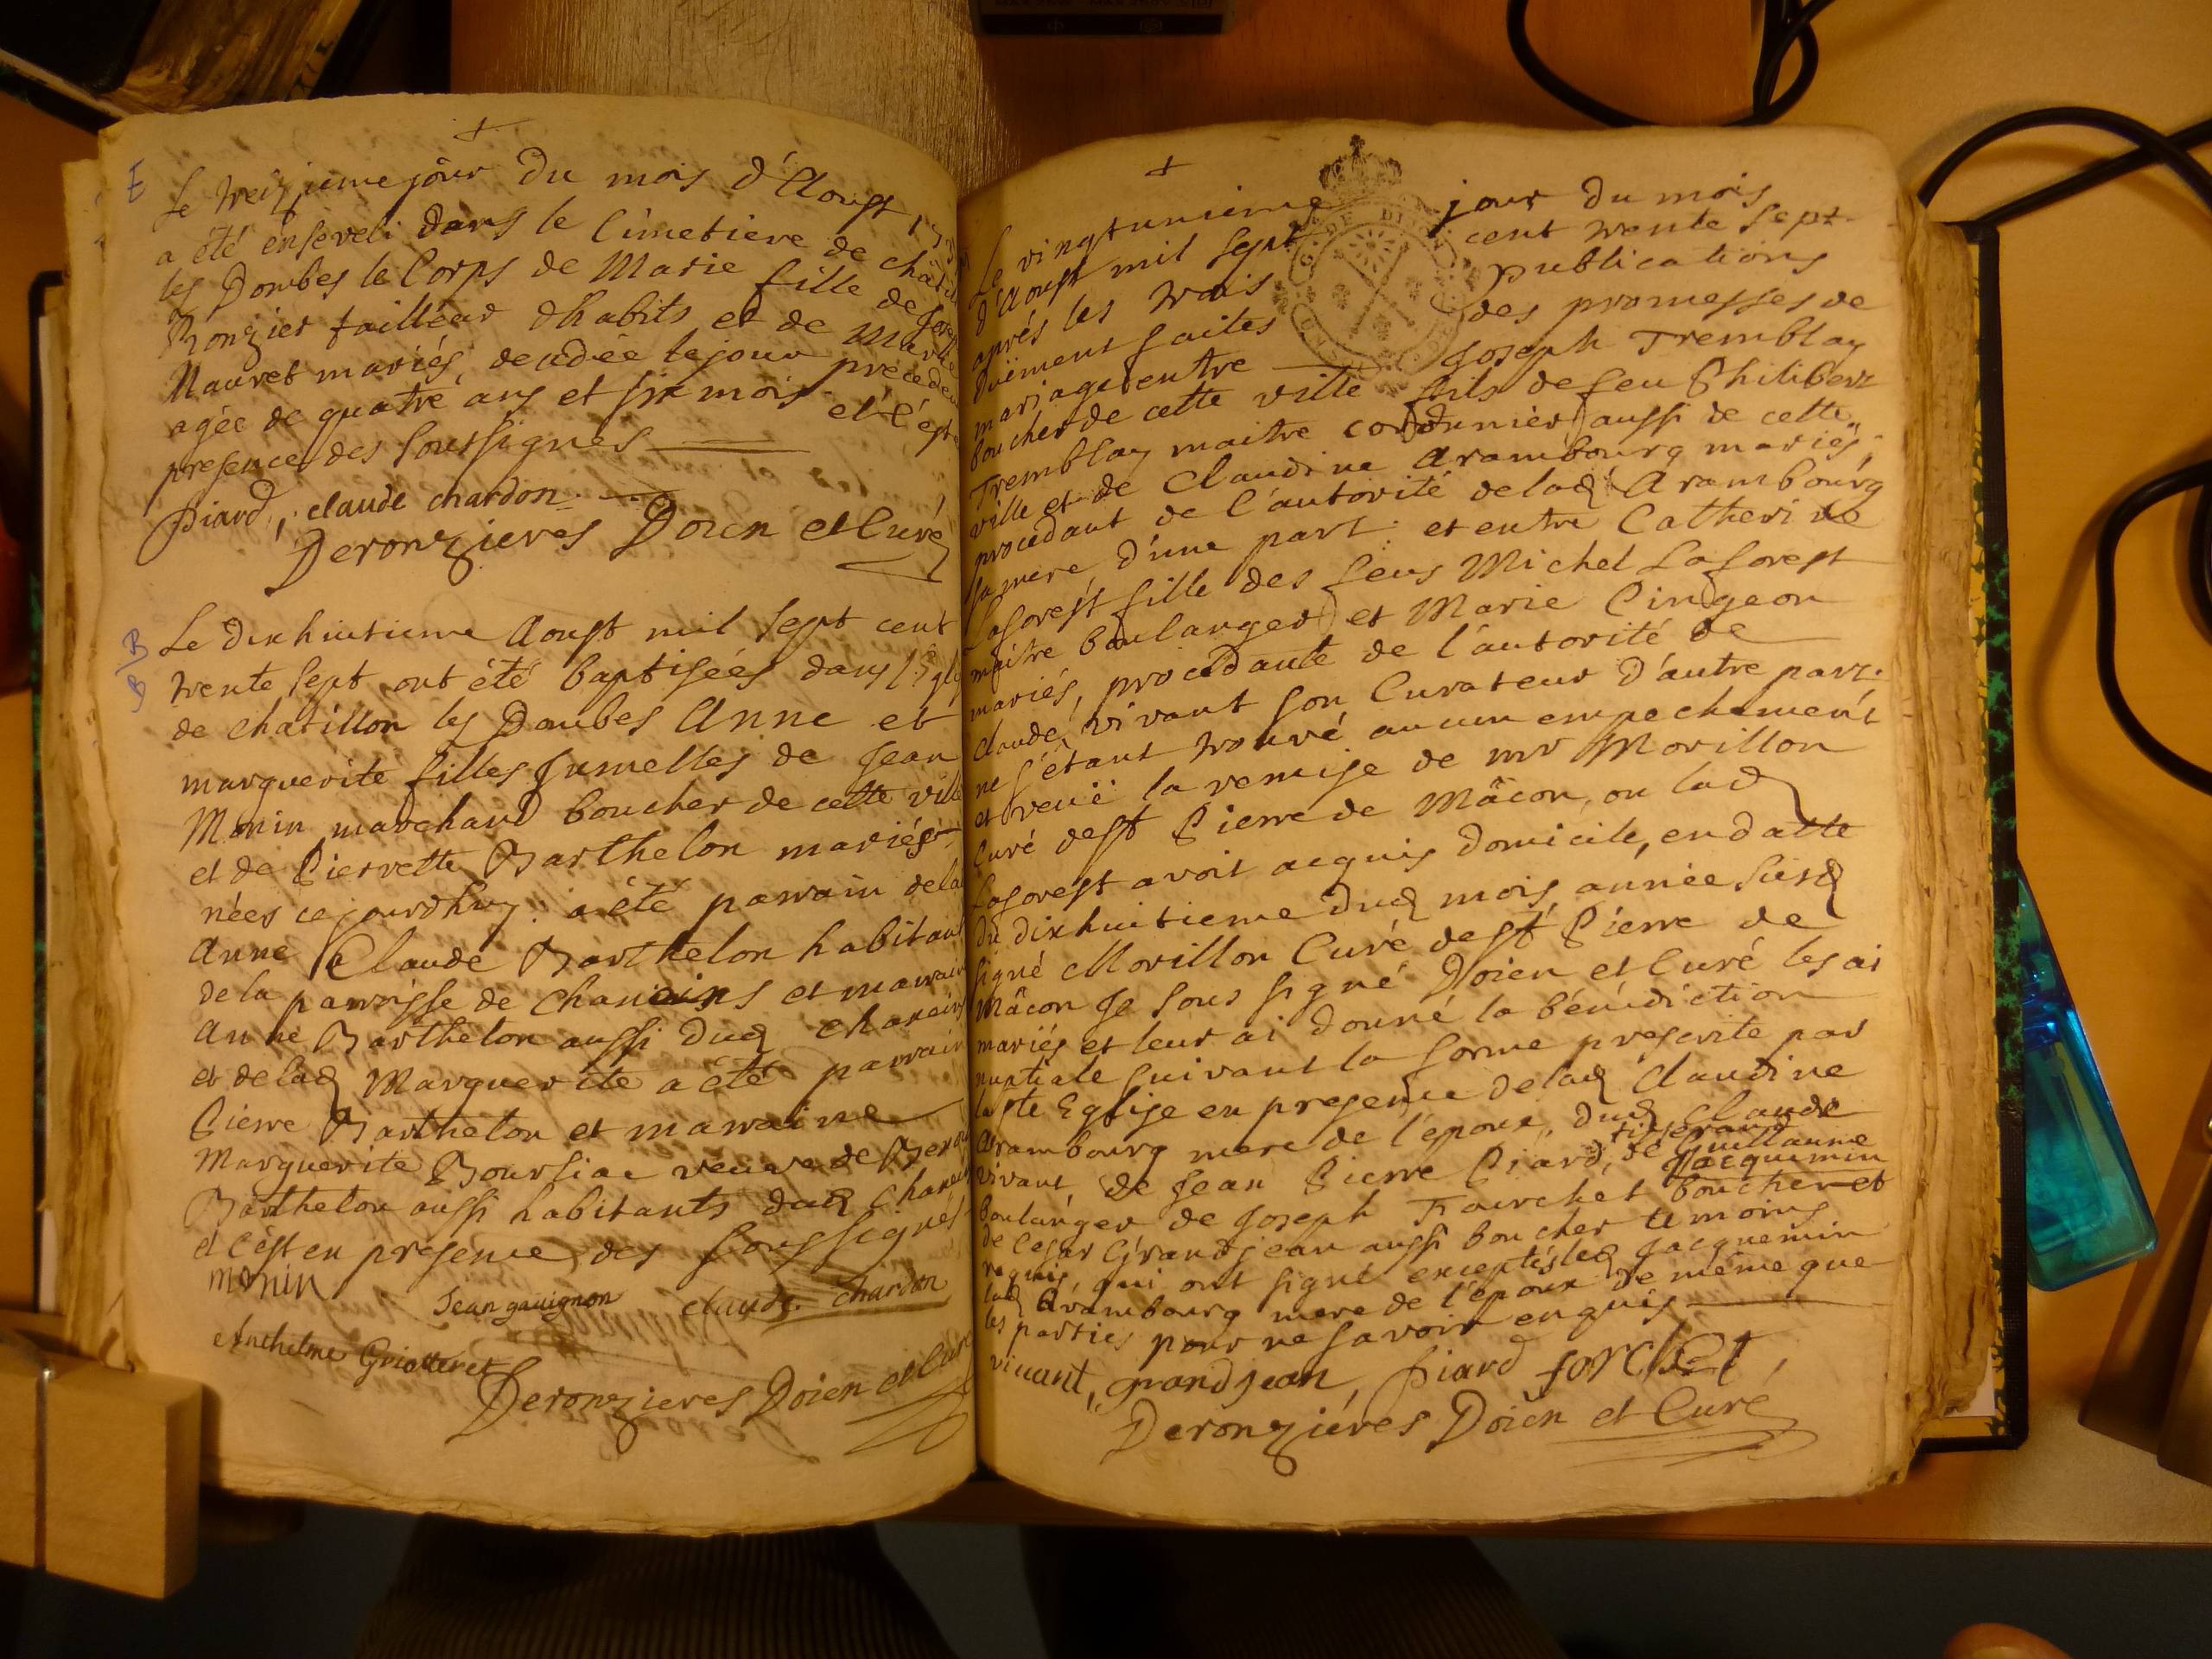 +
E
Le treizieme jour du mois d'Aoust
a été enseveli dans le Cimetiere de
les Dombes le Corps de Marie fille de
Ronzier tailleur dhabits et de
Nauret mariés, decedée le jour
agée de quatre ans et six mois et c'est
presence des soussignés
Piard, claude chardon.
Deronzieres Doien et Curé
B
B
Le dixhuitieme Aoust mil sept cent
trente sept ont été baptisées dans
de chatillon les Dombes Anne et
marguerite filles jumelles de Jean
Monin marchand boucher de cette ville
et de Pierrette Barthelon mariés
nées cejourdhuy: a été parrain
Anne Claude Barthelon habitant
de la parroisse de Chaneins et marraine
Anne Barthelon aussi dud Chaneins
et delad Marguerite a été parrain
Pierre Barthelon et marraine
Marguerite veuve de
Barthelon aussi habitants dud
et c'est en presence des soussignés
monin
Jean gauignon claude chardon
Anthelme Griotteret
Deronzieres Doien et Curé
+
G. DE DIJON
Le vingtunieme jour du mois
d'Aoust mil sept cent trente sept
aprés les trois publications
duëment faites des promesses de
mariage entre Joseph Tremblay
boucher de cette ville fils de feu Philibert
Tremblay maitre cordonnier aussi de cette
ville et de Claudine Arambourg mariés,
procedant de l'autorité delad Arambourg
sa mere d'une part: et entre Catherine
Laforest fille des feus Michel Laforest
maitre boulanger et Marie Pingeon
mariés, procedante de l'autorité de
claude vivant son Curateur d'autre part.
ne s'étant trouvé aucun empechement
et veuë la remise de mr Morillon
Curé de st Pierre de Mâcon, ou lad
Laforest avoit acquis domicile, en datte
du dixhuitieme dud mois, année susd
signé Morillon Curé de st Pierre de
Mâcon Je sous signé Doien et Curé les ai
mariés et leur ai donné la bénédiction
nuptiale suivant la forme prescrite par
la ste Eglise en presence delad Claudine
Arambourg mere de l'epoux, dud Claude
vivant de Jean Pierre Piard, tisserand de Guillaume Jacquemin
boulanger de Joseph Fourchet boucher et
de Cesar Grandjean aussi boucher temoins
requis, qui ont signé exceptés led Jacquemin
lad Arambourg mere de l'époux de même que
les parties pour ne savoir enquis
vivant, grandjean, piard forchet,
Deronziéres Doien et Curé